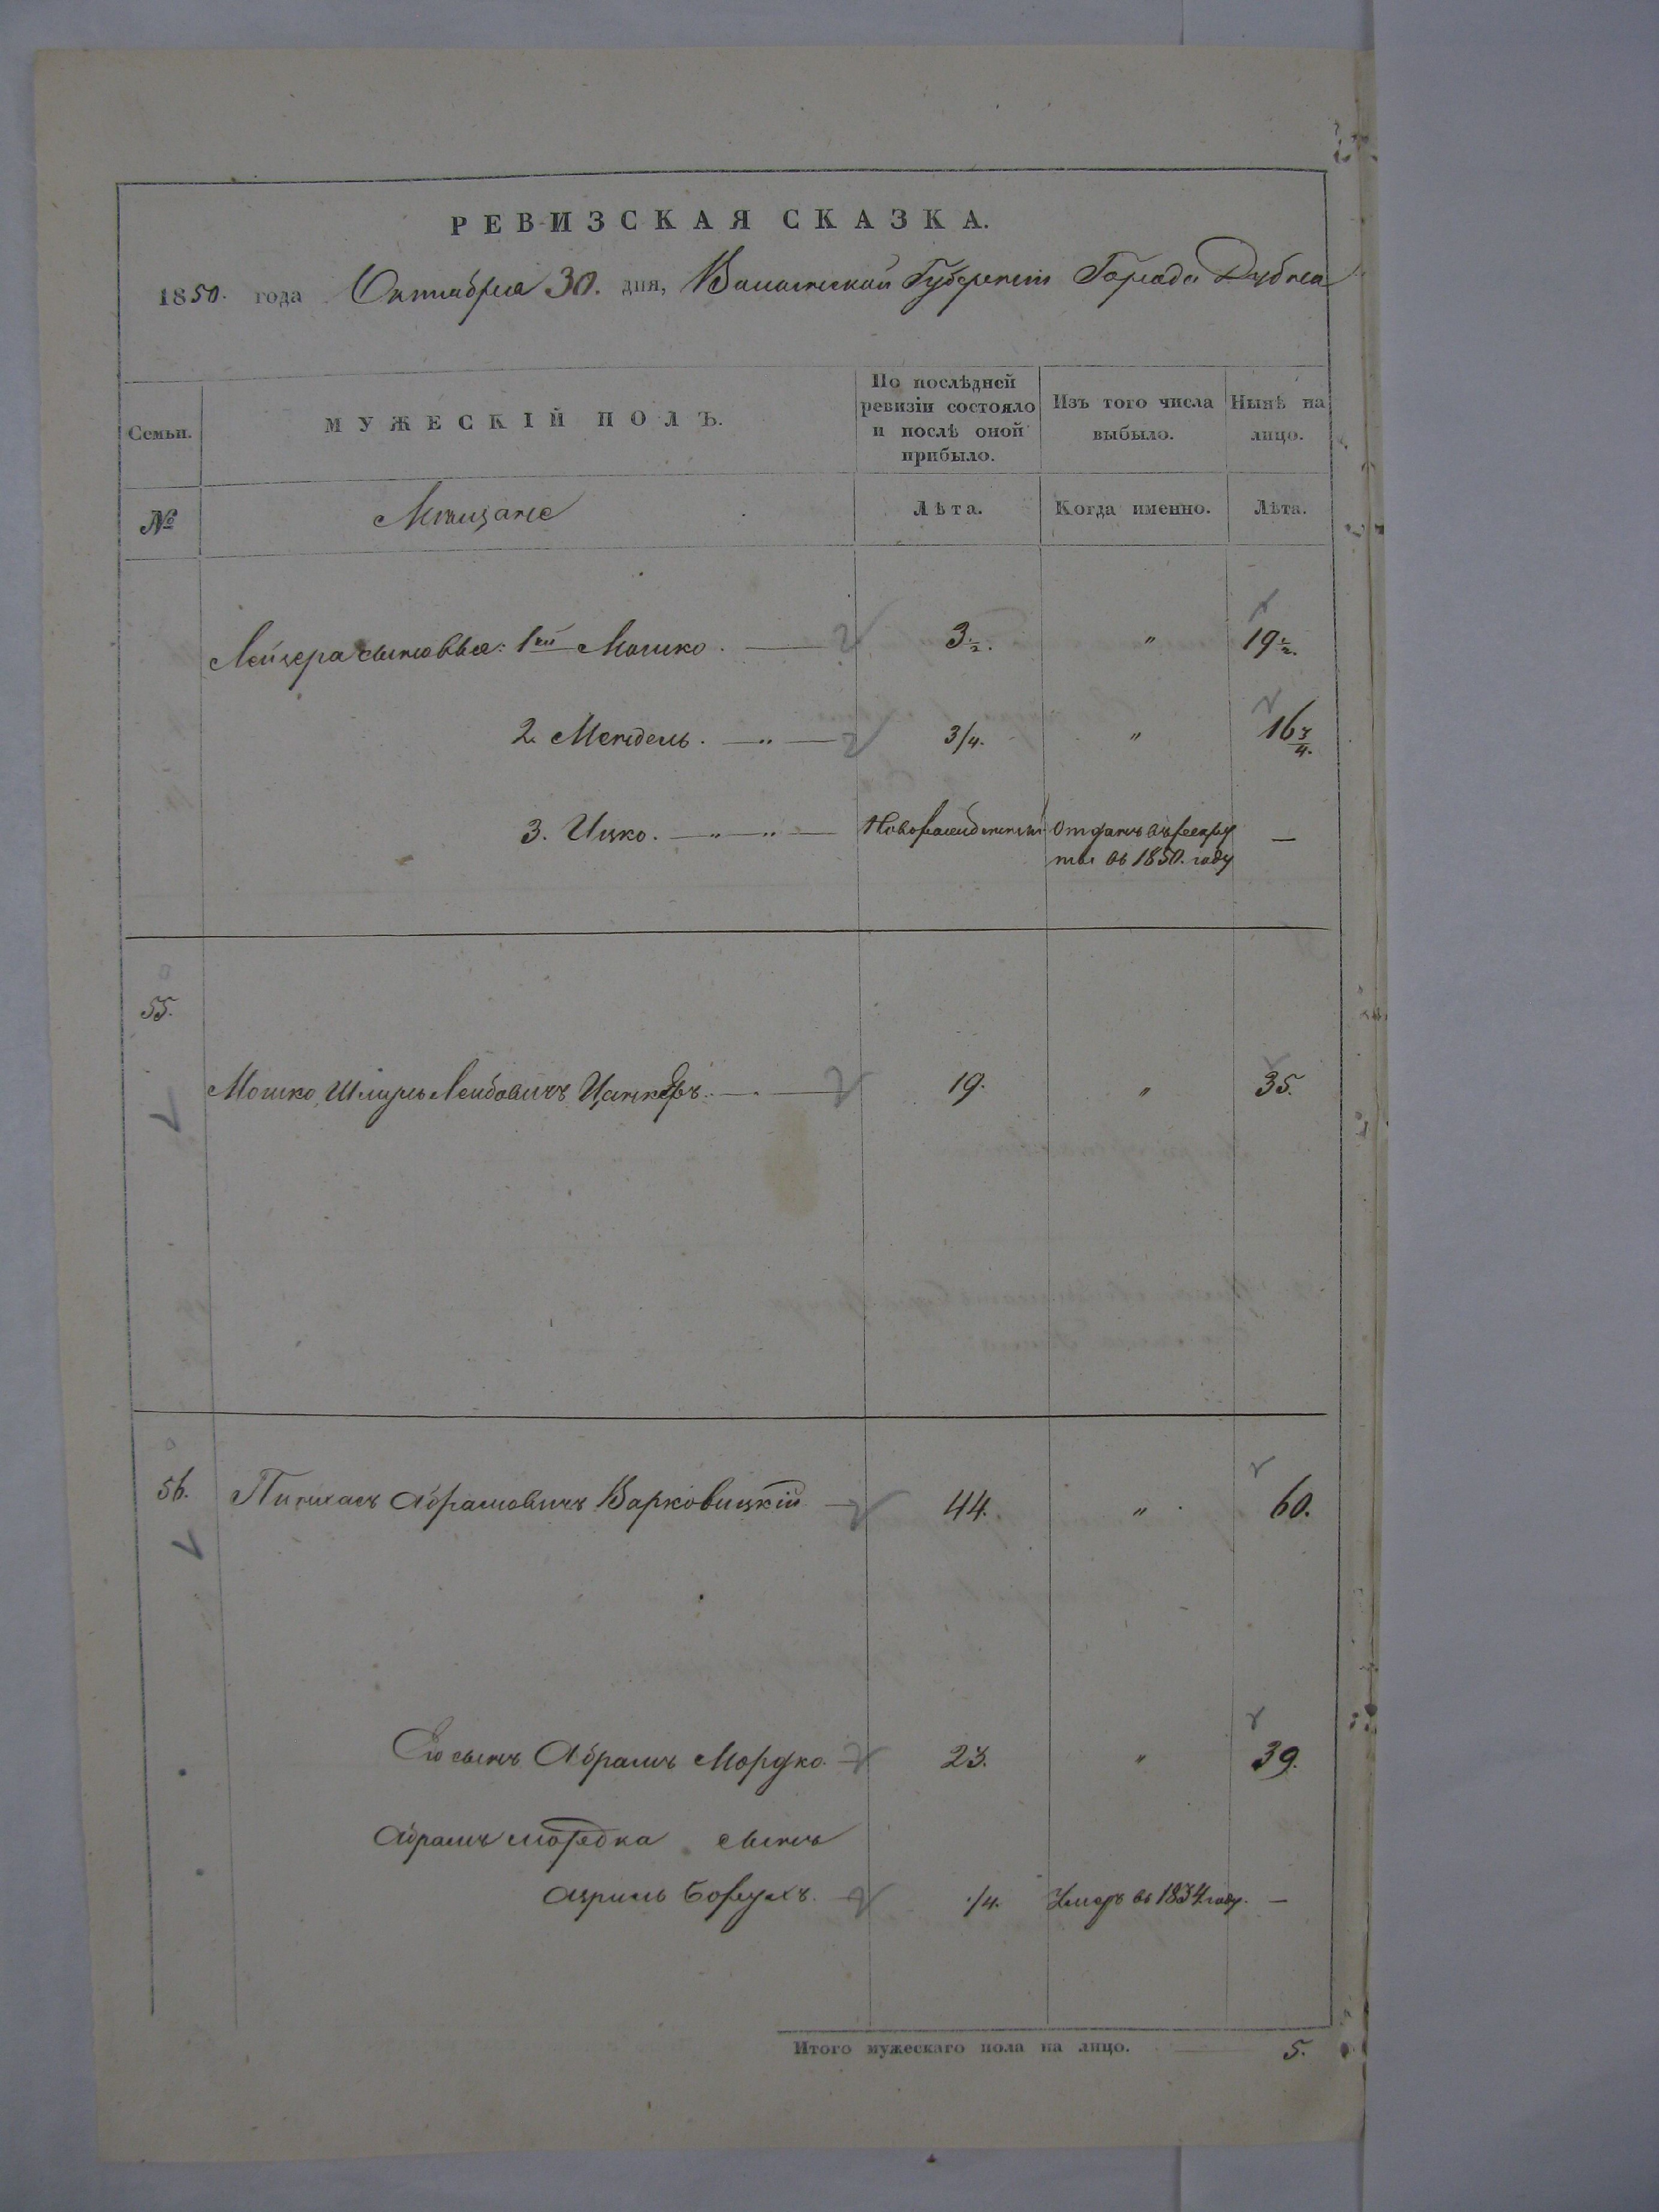 РЕВИЗСКАЯ СКАЗКА.
1850. года Октября 30. дня, Волынской Губернии Города Дубна
Семьи.
МУЖЕСКІЙ ПОЛЪ.
По послѣдней ревизіи состояло и послѣ оной прибыло.
Изъ того числа выбыло.
Нынѣ на лицо.
№
Мещане
Лѣта.
Когда именно.
Лѣта.
Лейзера сыновья: 1ый Мошко. 3½. " 19½.
2. Мендель. 3/4. " 16 3/4.
3. Ицко. Новорожденный Отданъ въ рекру
ты въ 1850. году —
55.
Мошко Шмуль Лейбовичъ Цанкеръ. 19. " 35.
56. Пинхасъ Абрамовичъ Варковицкій 44. " 60.
Его сынъ Абрамъ Мордко. 23. " 39.
Абрамъ Мордка сынъ
Азриль Борухъ. 1/4. Умеръ въ 1834. году. —
Итого мужескаго пола на лицо. 5.